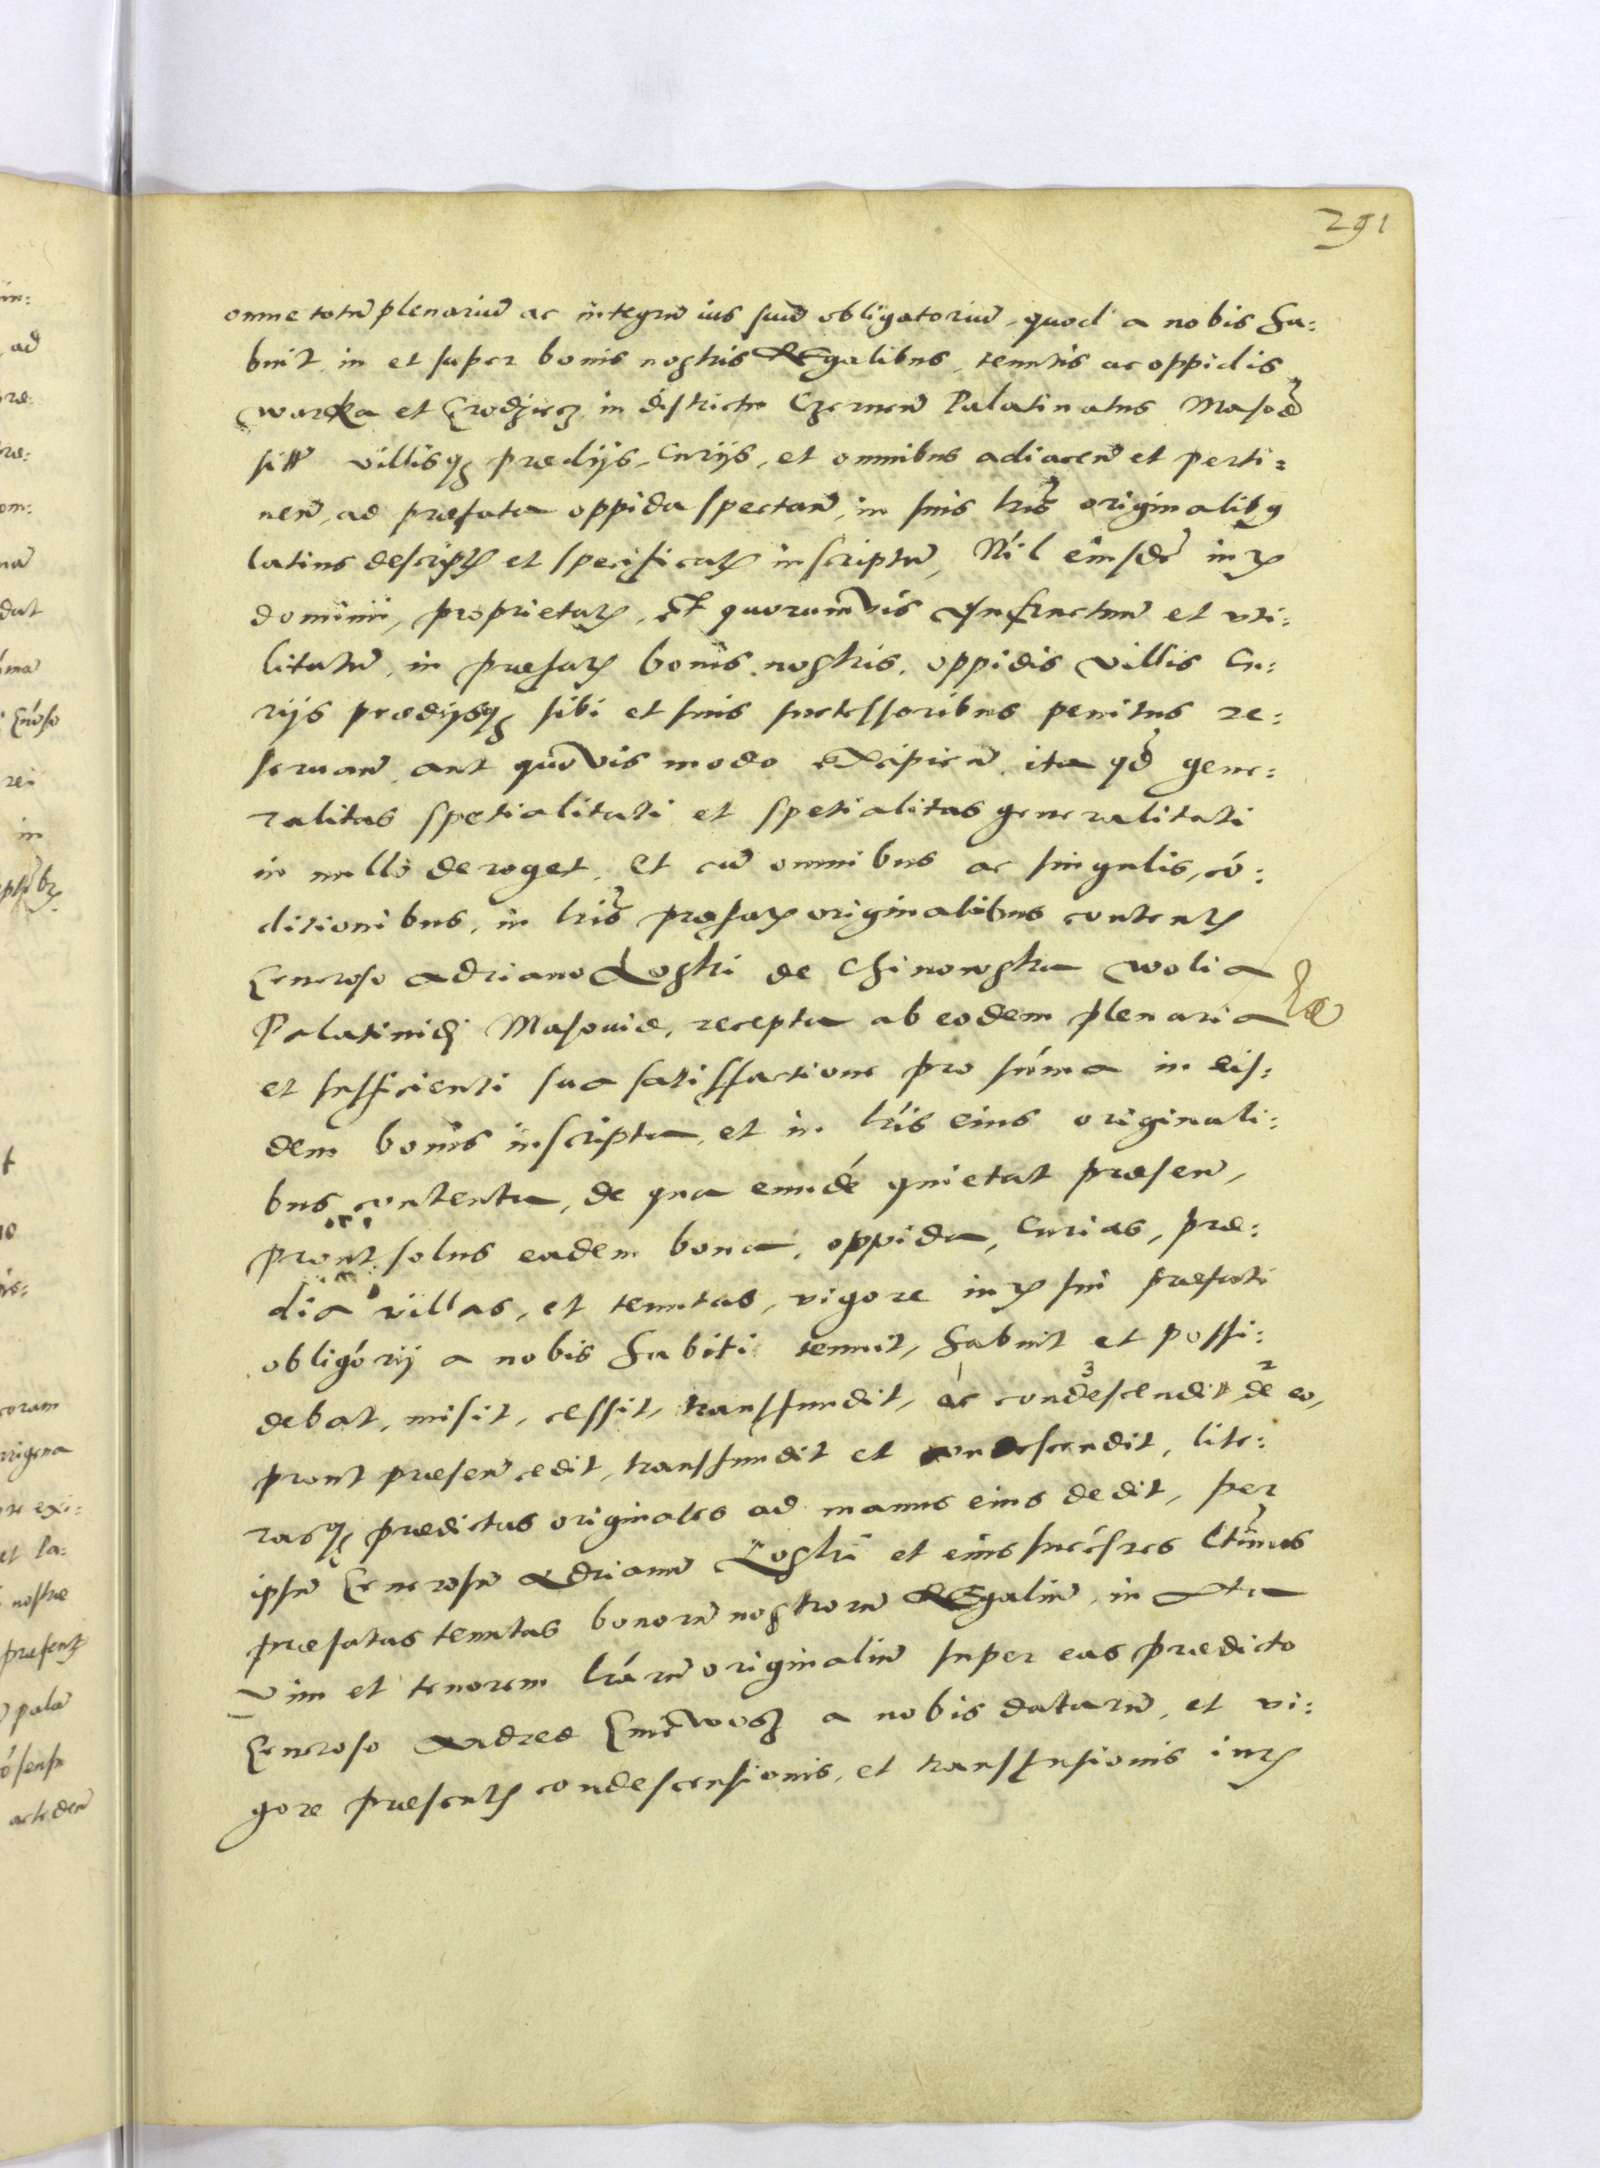 291
omne totū plenariū ac integrū ius suū obligatoriū, quod a nobis ha:
buit in et super bonis nostris Regalibus, tenutis ac oppidis
Warka et Grodziecz in districtu Czernen̄ Palatinatus Masoviæ
sitt villisq; prædijs, curijs, et omnibus adiacen̄ et perti:
nen̄, ad præfata oppida spectan̄, in suis lris originalibq
latius descript et specificat inscriptū, Nil eiusdē iur
dominii, proprietat, et quorumvis usufructuū et uti:
litatū, in præfat bonis nostris, oppidis villis cu:
rijs prædijsq; sibi et suis successoribus penitus re:
seruan̄ aut quovis modo excipien̄ ita qd gene:
ralitas spetialitati et spetialitas generalitati
in nullo deroget, et cū omnibus ac singulis, cō:
ditionibus, in lris præfat originalibus content
Generoso Adriano Loski de Chinowska Wolia
Palatinidi Masoviæ, recepta ab eodem plenaria
et sufficienti sua satisfactione pro sūma in eis:
dem bonis inscripta, et in lris eius originali:
bus contenta, de qua eundē quietat præsen̄,
prout solus eadem bona, oppida, curias, præ:
dia villas, et tenutas, vigore iur sui præfati
obligorij a nobis habiti tenuit, habuit et possi:
debat, misit, cessit, transfundit, ac condescendit de eo,
1 3 2
prout præsen̄ cedit, transfundit et condescendit, lite:
rasq; prædictas originales ad manus eius dedit, per
ipsū Generosū Adrianū Loski et eius succēsres ltimos
præfatas tenutas bonorū nostrorū Regaliū, in
vim et tenorem lrarū originaliū super eas prædicto
Generoso Andreæ a nobis datarū, et vi:
gore præsent condescensionis, et transfusionis iur